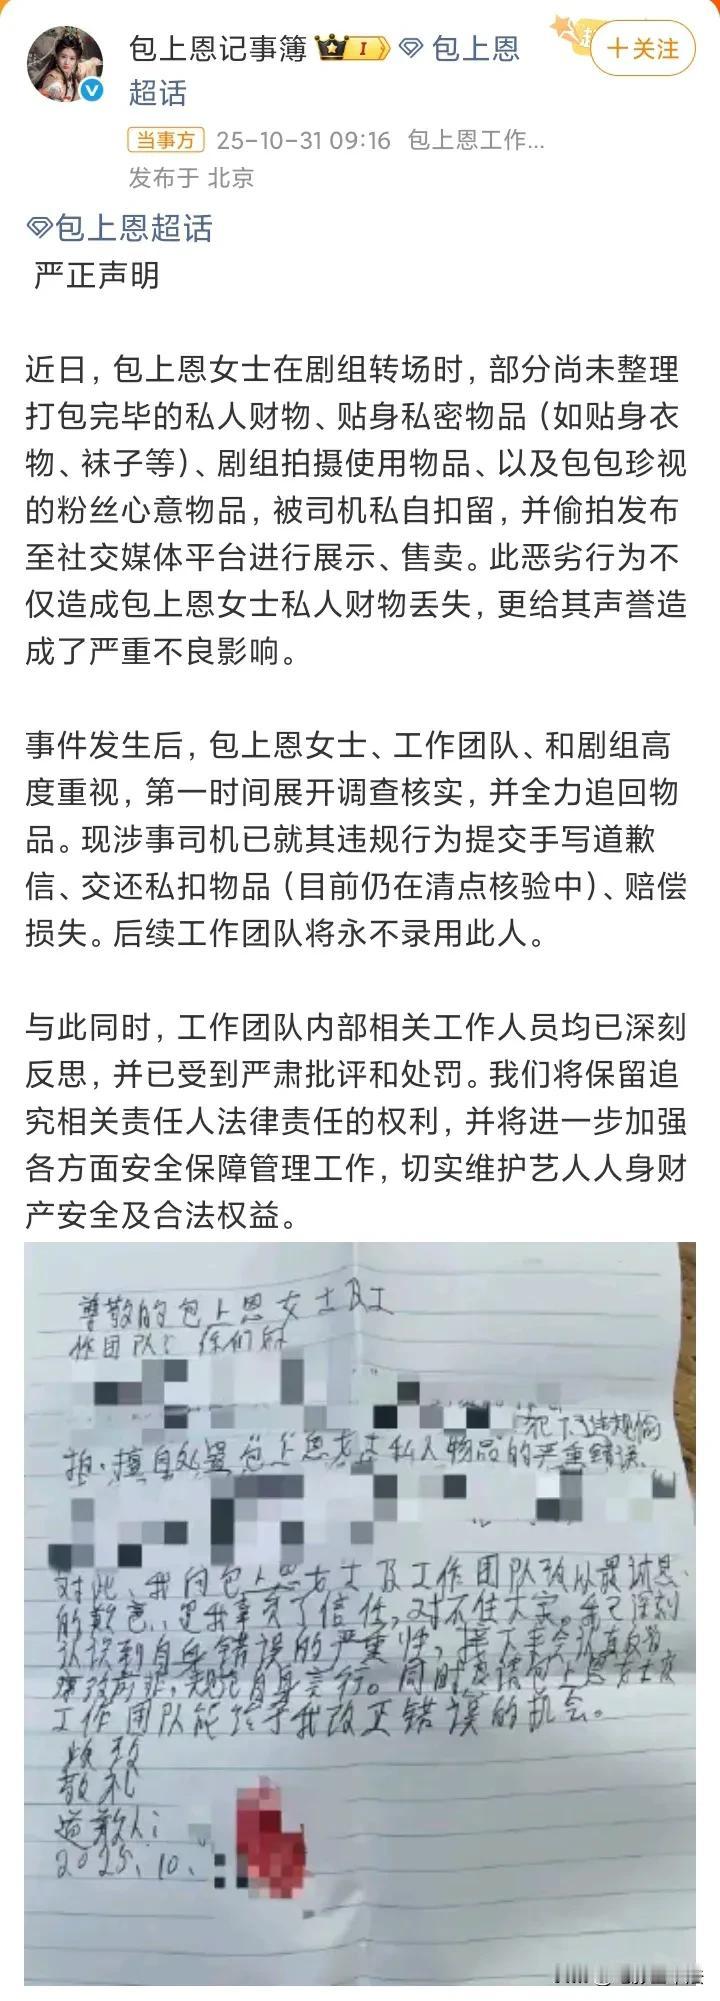 包上恩记事簿 I 包上恩
超话
+关注
当事方 25-10-31 09:16 包上恩工作...
发布于 北京
包上恩超话
严正声明
近日，包上恩女士在剧组转场时，部分尚未整理
打包完毕的私人财物、贴身私密物品（如贴身衣
物、袜子等）、剧组拍摄使用物品、以及包包珍视
的粉丝心意物品，被司机私自扣留，并偷拍发布
至社交媒体平台进行展示、售卖。此恶劣行为不
仅造成包上恩女士私人财物丢失，更给其声誉造
成了严重不良影响。
事件发生后，包上恩女士、工作团队、和剧组高
度重视，第一时间展开调查核实，并全力追回物
品。现涉事司机已就其违规行为提交手写道歉
信、交还私扣物品（目前仍在清点核验中）、赔偿
损失。后续工作团队将永不录用此人。
与此同时，工作团队内部相关工作人员均已深刻
反思，并已受到严肃批评和处罚。我们将保留追
究相关责任人法律责任的权利，并将进一步加强
各方面安全保障管理工作，切实维护艺人人身财
产安全及合法权益。
尊敬的包上恩女士及工
作团队：你们好
犯下违规偷
拍、擅自处置包上恩女士私人物品的严重错误、
对此、我向包上恩女士及工作团队致以最诚恳
的歉意、是我辜负了信任，对不住大家。我已深刻
认识到自身错误的严重性，接下来会认真反省
痛改前非，规范自身言行。同时恳请包上恩女士及
工作团队能给予我改正错误的机会。
此致
敬礼
道歉人：
2025、10、